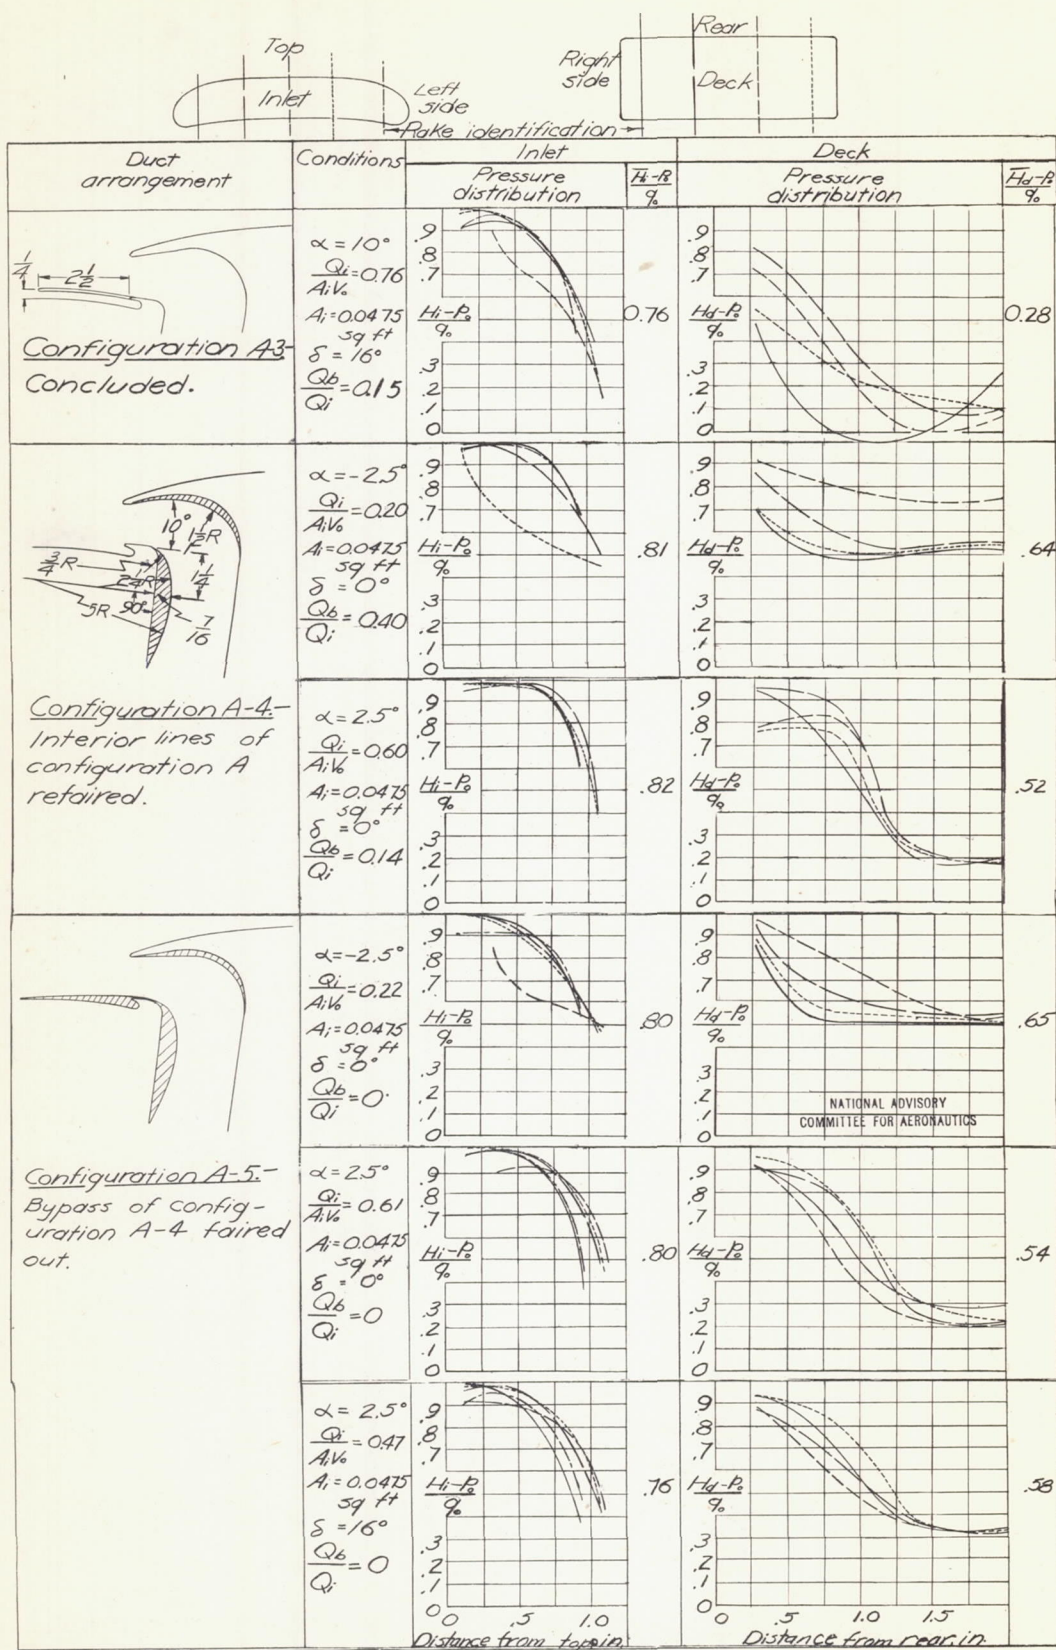 Top
Inlet
Left side
Rake identification
Right side
Rear
Deck
Duct arrangement
Conditions
Inlet
Pressure distribution
H̅i-P₀/q₀
Deck
Pressure distribution
H̅d-P₀/q₀
1/4
2 1/2
Configuration A3-
Concluded.
α = 10°
Qi/AiV₀ = 0.76
Ai = 0.0475 sq ft
δ = 16°
Qb/Qi = 0.15
.9
.8
.7
Hi-P₀/q₀
.3
.2
.1
0
0.76
.9
.8
.7
Hd-P₀/q₀
.3
.2
.1
0
0.28
10°
1 1/2 R
3/4 R
1 1/4
5R
90°
7/16
Configuration A-4.-
Interior lines of
configuration A
refaired.
α = -2.5°
Qi/AiV₀ = 0.20
Ai = 0.0475 sq ft
δ = 0°
Qb/Qi = 0.40
.9
.8
.7
Hi-P₀/q₀
.3
.2
.1
0
.81
.9
.8
.7
Hd-P₀/q₀
.3
.2
.1
0
.64
α = 2.5°
Qi/AiV₀ = 0.60
Ai = 0.0475 sq ft
δ = 0°
Qb/Qi = 0.14
.9
.8
.7
Hi-P₀/q₀
.3
.2
.1
0
.82
.9
.8
.7
Hd-P₀/q₀
.3
.2
.1
0
.52
Configuration A-5.-
Bypass of config-
uration A-4 faired
out.
α = -2.5°
Qi/AiV₀ = 0.22
Ai = 0.0475 sq ft
δ = 0°
Qb/Qi = 0
.9
.8
.7
Hi-P₀/q₀
.3
.2
.1
0
.80
.9
.8
.7
Hd-P₀/q₀
.3
.2
.1
0
.65
NATIONAL ADVISORY
COMMITTEE FOR AERONAUTICS
α = 2.5°
Qi/AiV₀ = 0.61
Ai = 0.0475 sq ft
δ = 0°
Qb/Qi = 0
.9
.8
.7
Hi-P₀/q₀
.3
.2
.1
0
.80
.9
.8
.7
Hd-P₀/q₀
.3
.2
.1
0
.54
α = 2.5°
Qi/AiV₀ = 0.47
Ai = 0.0475 sq ft
δ = 16°
Qb/Qi = 0
.9
.8
.7
Hi-P₀/q₀
.3
.2
.1
0
.76
.9
.8
.7
Hd-P₀/q₀
.3
.2
.1
0
.58
0 .5 1.0
Distance from top, in.
0 .5 1.0 1.5
Distance from rear, in.